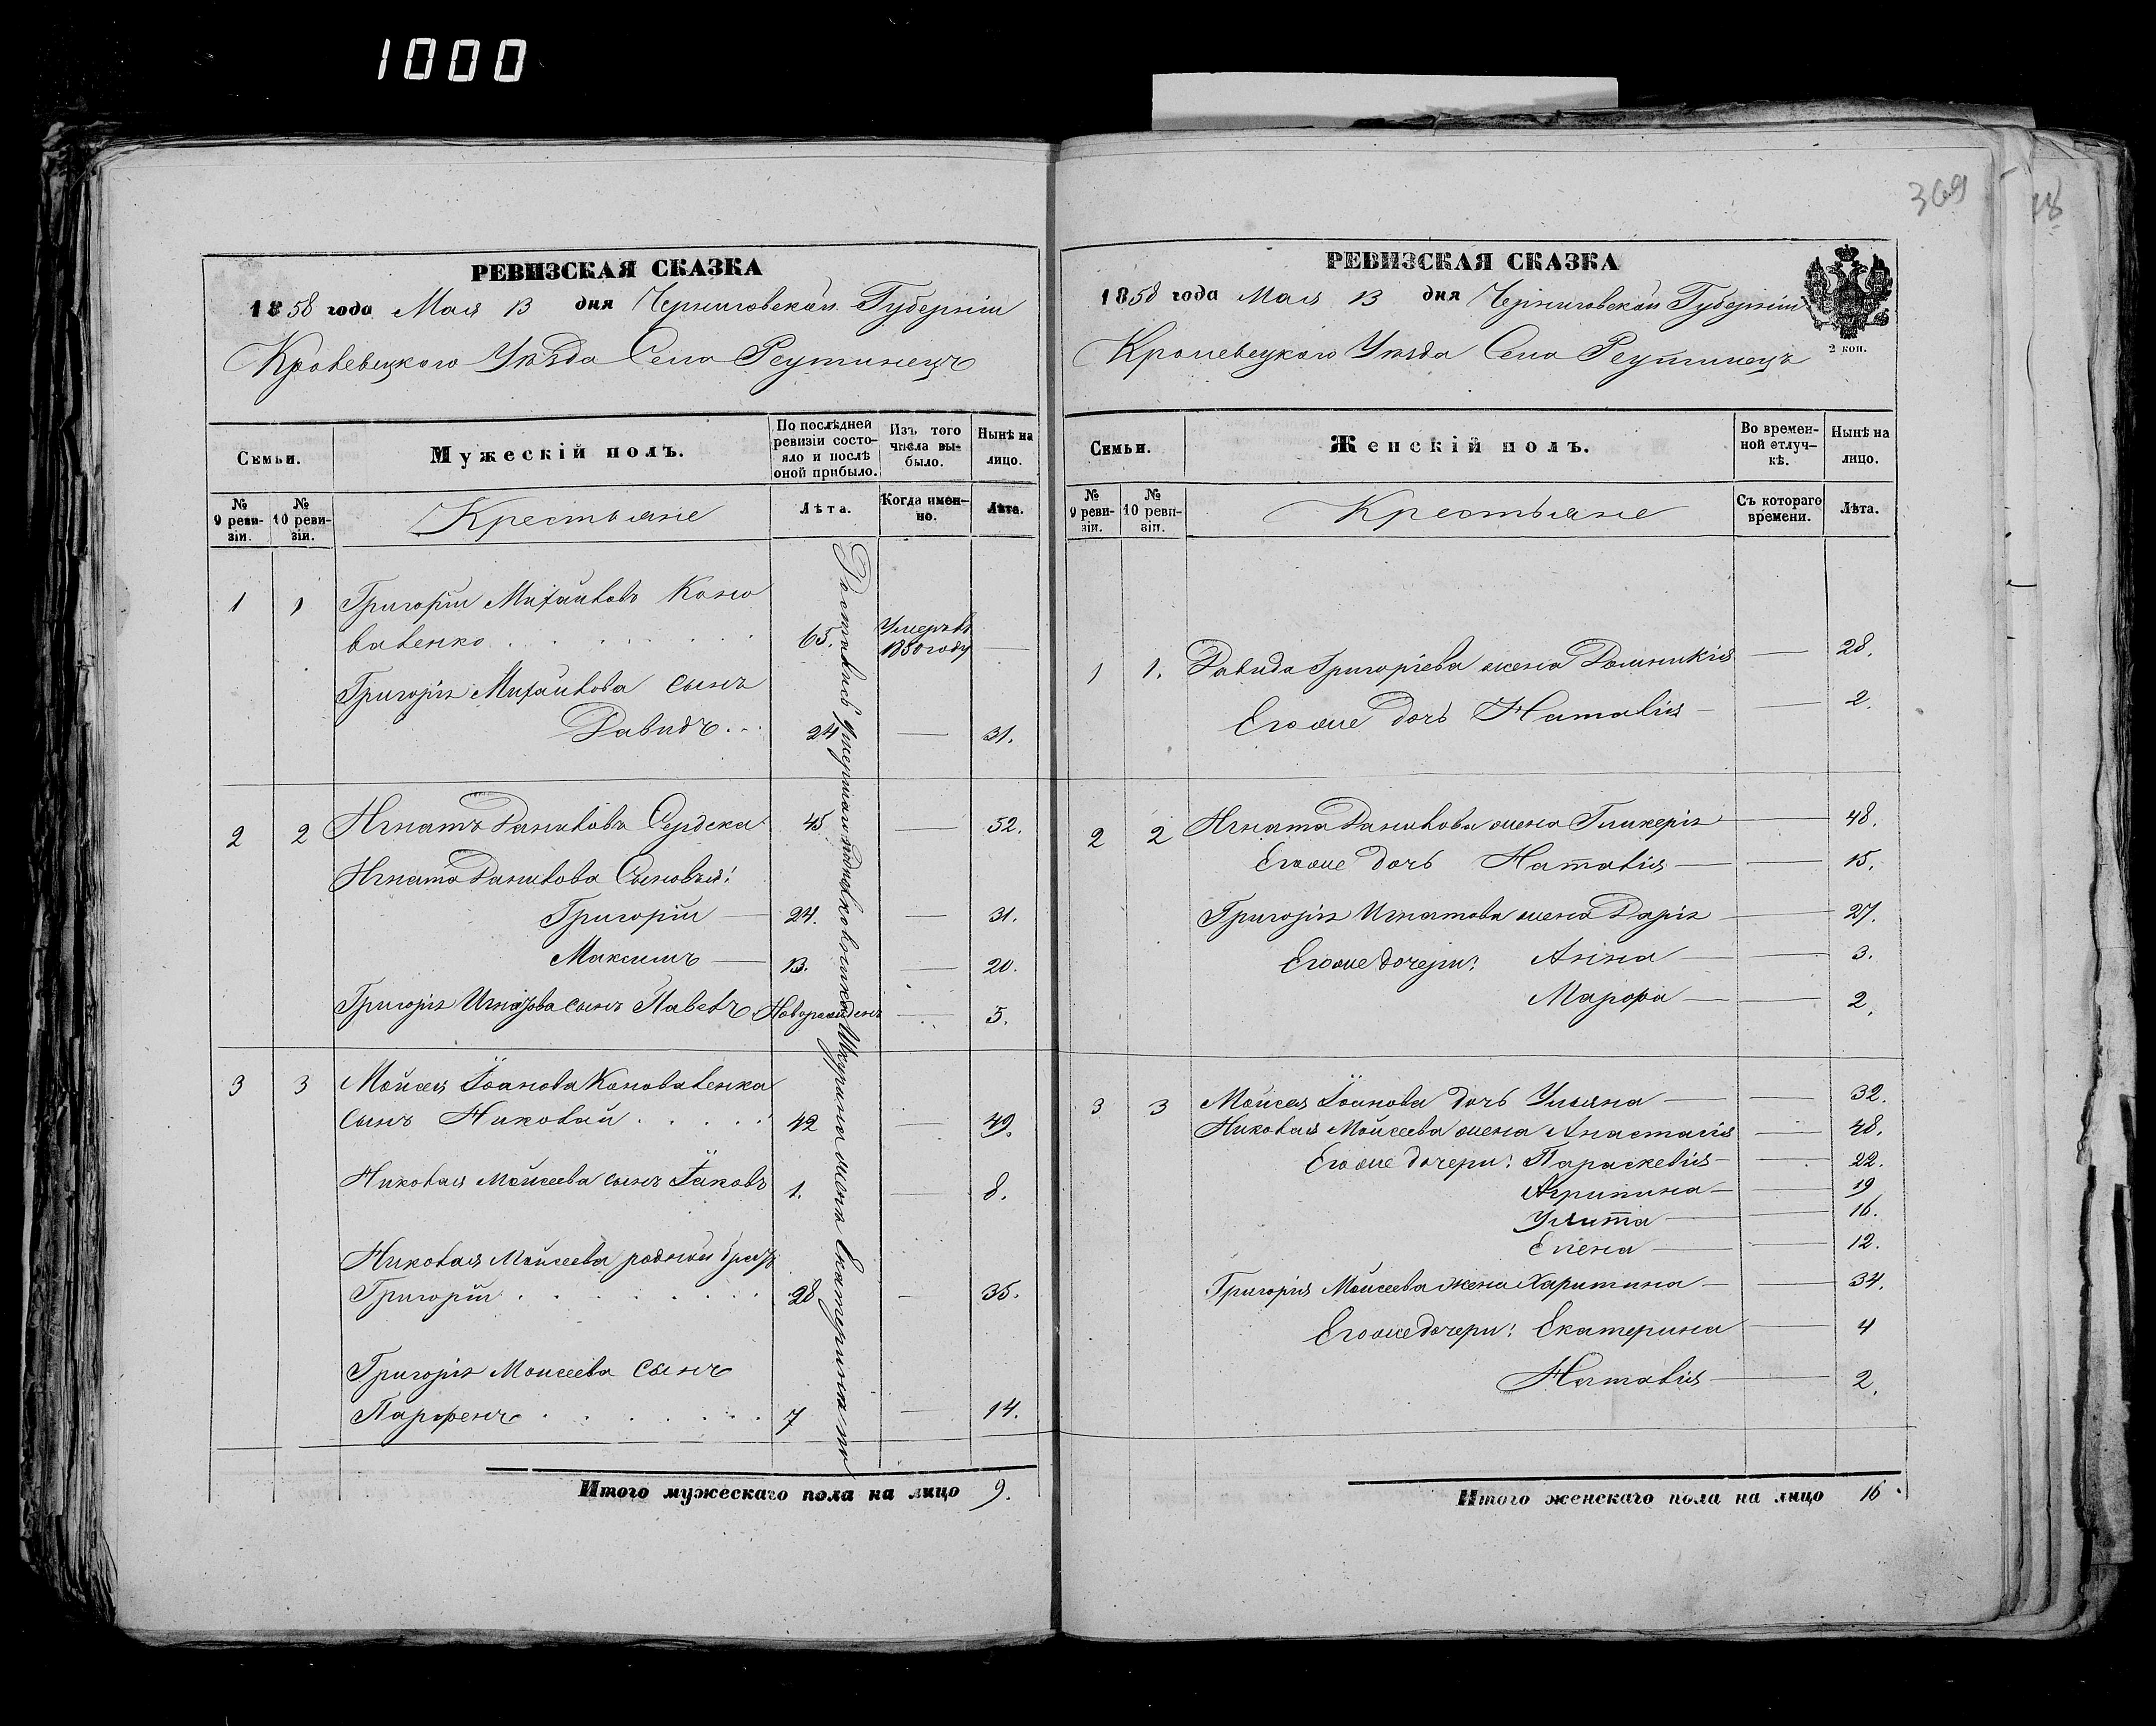 1000
369
18
РЕВИЗСКАЯ СКАЗКА
1858 года Мая 13 дня Черниговской Губерніи
Кролевецкого Уѣзда Села Реутинецъ
Семьи.
Мужескій полъ.
По послѣдней ревизіи состояло и послѣ оной прибыло.
Изъ того числа выбыло.
Нынѣ на лицо.
№ 9 ревизіи.
№ 10 ревизіи.
Крестьяне
Лѣта.
Когда именно.
Лѣта.
1 1 Григорій Михайловъ Коно
валенко . . . . . . . 65. Умеръ въ 1850 году —
Григорія Михайлова сынъ
Давидъ . . 24 — 31.
2 2 Игнатъ Даниловъ Сердека 45 — 52.
Игната Данилова Сыновья:
Григорій — 24. — 31.
Максимъ — 13. — 20.
Григорія Игнатова сынъ Павелъ Новорожденъ — 5.
3 3 Мойсея Іоанова Коноваленка
сынъ Николай . . . . . 42 — 49.
Николая Мойсеева сынъ Іаковъ 1. — 8.
Николая Мойсеева родной братъ
Григорій . . . . . . . 28 — 35.
Григорія Мойсеева Сынъ
Парфенъ . . . . . . . 7 — 14.
умершаго подполковника жена Екатерина по
Итого мужескаго пола на лицо 9.
РЕВИЗСКАЯ СКАЗКА
1858 года Мая 13 дня Черниговской Губерніи
2 коп.
Кролевецкого Уѣзда Села Реутинецъ
Семьи.
Женскій полъ.
Во временной отлучкѣ.
Нынѣ на лицо.
№ 9 ревизіи.
№ 10 ревизіи.
Крестьяне
Съ котораго времени.
Лѣта.
1 1. Давида Григоріева жена Домникія — 28.
Его же дочь Наталія — — 2.
2 2 Игната Данилова жена Гликерія — 48.
Его же дочь Наталія — — 15.
Григорія Игнатова жена Дарія — 27.
Его же дочери: Анна — — 3.
Марфа — — 2.
3 3 Мойсея Іоанова дочь Ульяна — — 32.
Николая Мойсеева жена Анастасія — 48.
Его же дочери: Параскевія — — 22.
Агрипина — — 19
Улита — — 16.
Елена — — 12.
Григорія Мойсеева жена Харитина — — 34.
Его же дочери: Екатерина — 4
Наталія — — 2.
Итого женскаго пола на лицо 16.